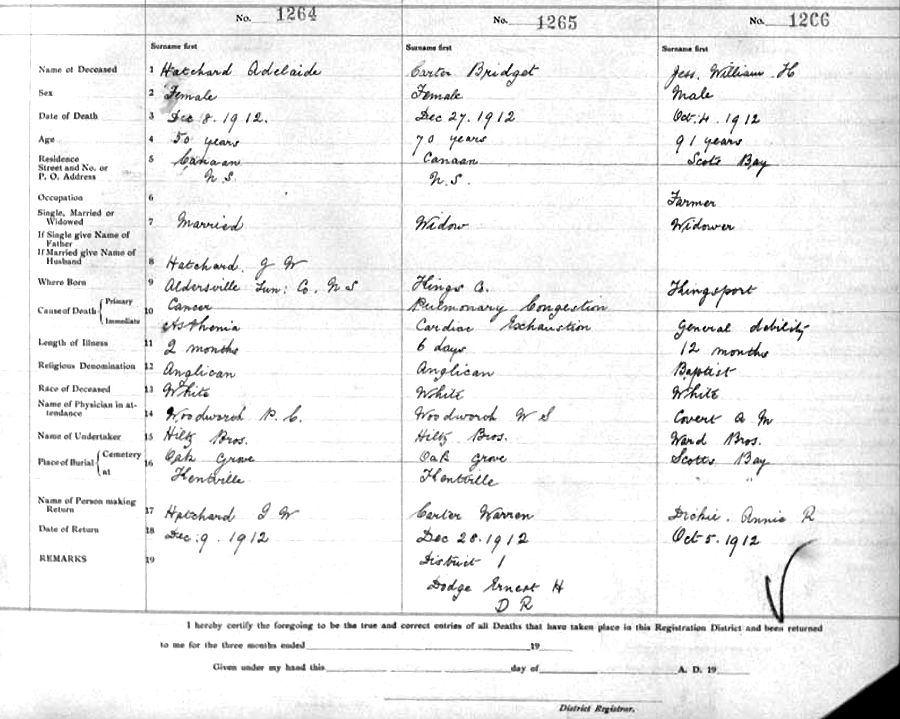 No. 1264 No. 1265 No. 1266
Surname first Surname first Surname first
Name of Deceased 1 Hatchard Adelaide Carter Bridget Jess. William H
Sex 2 Female Female Male
Date of Death 3 Dec 8. 1912. Dec 27. 1912 Oct. 4. 1912
Age 4 50 years 70 years 91 years
Residence 5 Canaan Canaan Scots Bay
Street and No. or
P. O. Address N S. N. S.
Occupation 6 Farmer
Single, Married or
Widowed 7 Married Widow Widower
If Single give Name of
Father
If Married give Name of
Husband 8 Hatchard. G W
Where Born 9 Aldersville Lun: Co. N S Kings Co. Kingsport
Cause of Death 10 Primary Cancer Pulmonary Congestion
Immediate Asthenia Cardiac Exhaustion General debility
Length of Illness 11 2 months 6 days 12 months
Religious Denomination 12 Anglican Anglican Baptist
Race of Deceased 13 White White White
Name of Physician in at-
tendance 14 Woodworth P. C. Woodworth W S Covert A M
Name of Undertaker 15 Hiltz Bros. Hiltz Bros. Ward Bros.
Place of Burial 16 Cemetery Oak Grove Oak Grove Scotts Bay
at Kentville Kentville " "
Name of Person making
Return 17 Hatchard G W Carter Warren Dickie. Annie R
Date of Return 18 Dec. 9. 1912 Dec 28. 1912 Oct 5. 1912
REMARKS 19 District 1
Dodge Ernest H
D R
I hereby certify the foregoing to be the true and correct entries of all Deaths that have taken place in this Registration District and been returned
to me for the three months ended 19
Given under my hand this day of A. D. 19
District Registrar.